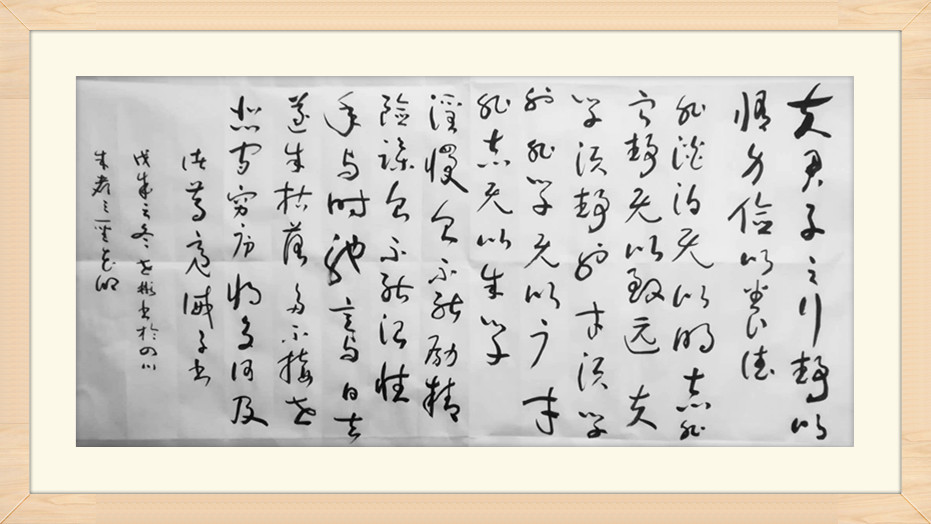 夫君子之行静以
修身俭以养德
非澹泊无以明志非
宁静无以致远夫
学须静也才须学
也非学无以广才
非志无以成学
淫慢则不能励精
险躁则不能治性
年与时驰意与日去
遂成枯落多不接世
悲守穷庐将复何及
诸葛亮诫子书
戊戌之冬世彬书於四川